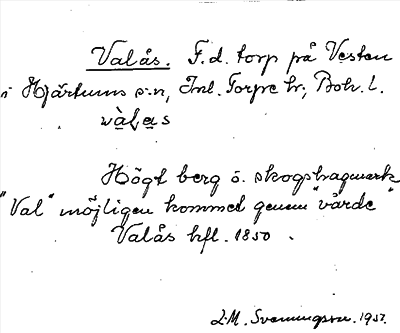 Valås. F.d. torp på Vesten
i Hjärtums s:n, Inl. Torpe hr, Boh. l.
vàḷas
Högt berg ö. skogshagmark
"Val" möjligen kommet genom "vårde"
Valås hfl. 1850.
L.M. Svenningson. 1937.